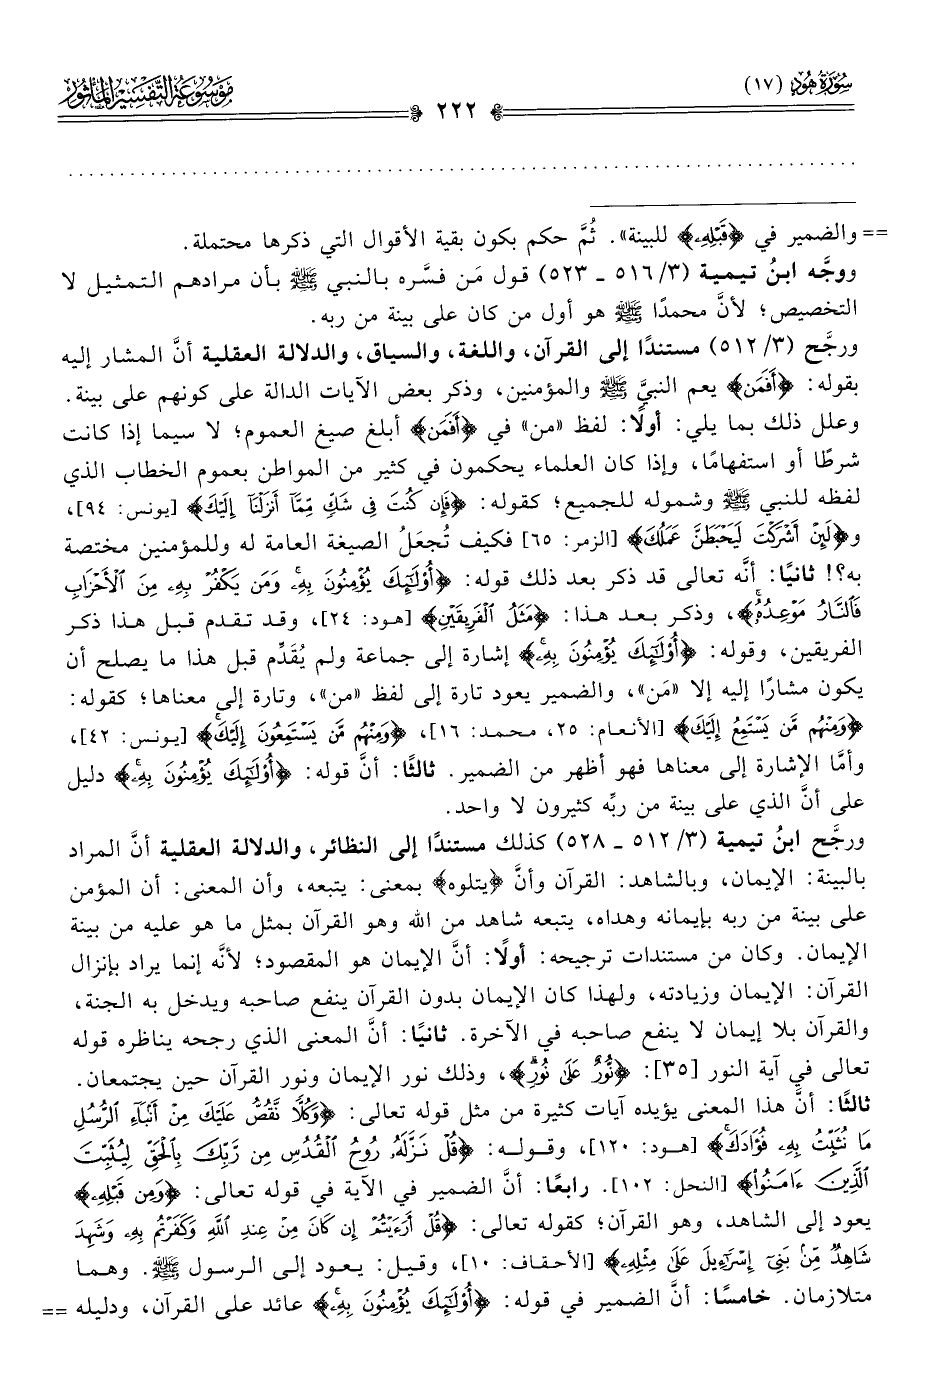 سُورَةُ هُودٍ (١٧)
٢٢٢
مَوْسُوعَة التَّفْسِير المَأْثُور
== والضمير في ﴿قَبْلِهِۦ﴾ للبينة». ثُمَّ حكم بكون بقية الأقوال التي ذكرها محتملة.
ووجَّه ابنُ تيمية (٣/ ٥١٦ ـ ٥٢٣) قول مَن فسَّره بالنبي ﷺ بأن مرادهم التمثيل لا
التخصيص؛ لأنَّ محمدًا ﷺ هو أول من كان على بينة من ربه.
ورجَّح (٣/ ٥١٢) مستندًا إلى القرآن، واللغة، والسياق، والدلالة العقلية أنَّ المشار إليه
بقوله: ﴿أَفَمَن﴾ يعم النبيَّ ﷺ والمؤمنين، وذكر بعض الآيات الدالة على كونهم على بينة.
وعلل ذلك بما يلي: أولًا: لفظ «من» في ﴿أَفَمَن﴾ أبلغ صيغ العموم؛ لا سيما إذا كانت
شرطًا أو استفهامًا، وإذا كان العلماء يحكمون في كثير من المواطن بعموم الخطاب الذي
لفظه للنبي ﷺ وشموله للجميع؛ كقوله: ﴿فَإِن كُنتَ فِى شَكٍّ مِّمَّآ أَنزَلْنَآ إِلَيْكَ﴾ [يونس: ٩٤]،
و﴿لَئِنْ أَشْرَكْتَ لَيَحْبَطَنَّ عَمَلُكَ﴾ [الزمر: ٦٥] فكيف تُجعَلُ الصيغة العامة له وللمؤمنين مختصة
به؟! ثانيًا: أنَّه تعالى قد ذكر بعد ذلك قوله: ﴿أُوْلَٰٓئِكَ يُؤْمِنُونَ بِهِۦۚ وَمَن يَكْفُرْ بِهِۦ مِنَ ٱلْأَحْزَابِ
فَٱلنَّارُ مَوْعِدُهُۥۚ﴾، وذكر بعد هذا: ﴿مَثَلُ ٱلْفَرِيقَيْنِ﴾ [هود: ٢٤]، وقد تقدم قبل هذا ذكر
الفريقين، وقوله: ﴿أُوْلَٰٓئِكَ يُؤْمِنُونَ بِهِۦۚ﴾ إشارة إلى جماعة ولم يُقَدِّم قبل هذا ما يصلح أن
يكون مشارًا إليه إلا «مَن»، والضمير يعود تارة إلى لفظ «من»، وتارة إلى معناها؛ كقوله:
﴿وَمِنْهُم مَّن يَسْتَمِعُ إِلَيْكَ﴾ [الأنعام: ٢٥، محمد: ١٦]، ﴿وَمِنْهُم مَّن يَسْتَمِعُونَ إِلَيْكَۚ﴾ [يونس: ٤٢]،
وأمَّا الإشارة إلى معناها فهو أظهر من الضمير. ثالثًا: أنَّ قوله: ﴿أُوْلَٰٓئِكَ يُؤْمِنُونَ بِهِۦۚ﴾ دليل
على أنَّ الذي على بينة من ربِّه كثيرون لا واحد.
ورجَّح ابنُ تيمية (٣/ ٥١٢ ـ ٥٢٨) كذلك مستندًا إلى النظائر، والدلالة العقلية أنَّ المراد
بالبينة: الإيمان، وبالشاهد: القرآن وأنَّ ﴿يتلوه﴾ بمعنى: يتبعه، وأن المعنى: أن المؤمن
على بينة من ربه بإيمانه وهداه، يتبعه شاهد من الله وهو القرآن بمثل ما هو عليه من بينة
الإيمان. وكان من مستندات ترجيحه: أولًا: أنَّ الإيمان هو المقصود؛ لأنَّه إنما يراد بإنزال
القرآن: الإيمان وزيادته، ولهذا كان الإيمان بدون القرآن ينفع صاحبه ويدخل به الجنة،
والقرآن بلا إيمان لا ينفع صاحبه في الآخرة. ثانيًا: أنَّ المعنى الذي رجحه يناظره قوله
تعالى في آية النور [٣٥]: ﴿نُّورٌ عَلَىٰ نُورٍۗ﴾، وذلك نور الإيمان ونور القرآن حين يجتمعان.
ثالثًا: أنَّ هذا المعنى يؤيده آيات كثيرة من مثل قوله تعالى: ﴿وَكُلًّا نَّقُصُّ عَلَيْكَ مِنْ أَنۢبَآءِ ٱلرُّسُلِ
مَا نُثَبِّتُ بِهِۦ فُؤَادَكَۚ﴾ [هود: ١٢٠]، وقوله: ﴿قُلْ نَزَّلَهُۥ رُوحُ ٱلْقُدُسِ مِن رَّبِّكَ بِٱلْحَقِّ لِيُثَبِّتَ
ٱلَّذِينَ ءَامَنُوا۟﴾ [النحل: ١٠٢]. رابعًا: أنَّ الضمير في الآية في قوله تعالى: ﴿وَمِن قَبْلِهِۦ﴾
يعود إلى الشاهد، وهو القرآن؛ كقوله تعالى: ﴿قُلْ أَرَءَيْتُمْ إِن كَانَ مِنْ عِندِ ٱللَّهِ وَكَفَرْتُم بِهِۦ وَشَهِدَ
شَاهِدٌ مِّنۢ بَنِىٓ إِسْرَٰٓءِيلَ عَلَىٰ مِثْلِهِۦ﴾ [الأحقاف: ١٠]، وقيل: يعود إلى الرسول ﷺ. وهما
متلازمان. خامسًا: أنَّ الضمير في قوله: ﴿أُوْلَٰٓئِكَ يُؤْمِنُونَ بِهِۦۚ﴾ عائد على القرآن، ودليله ==